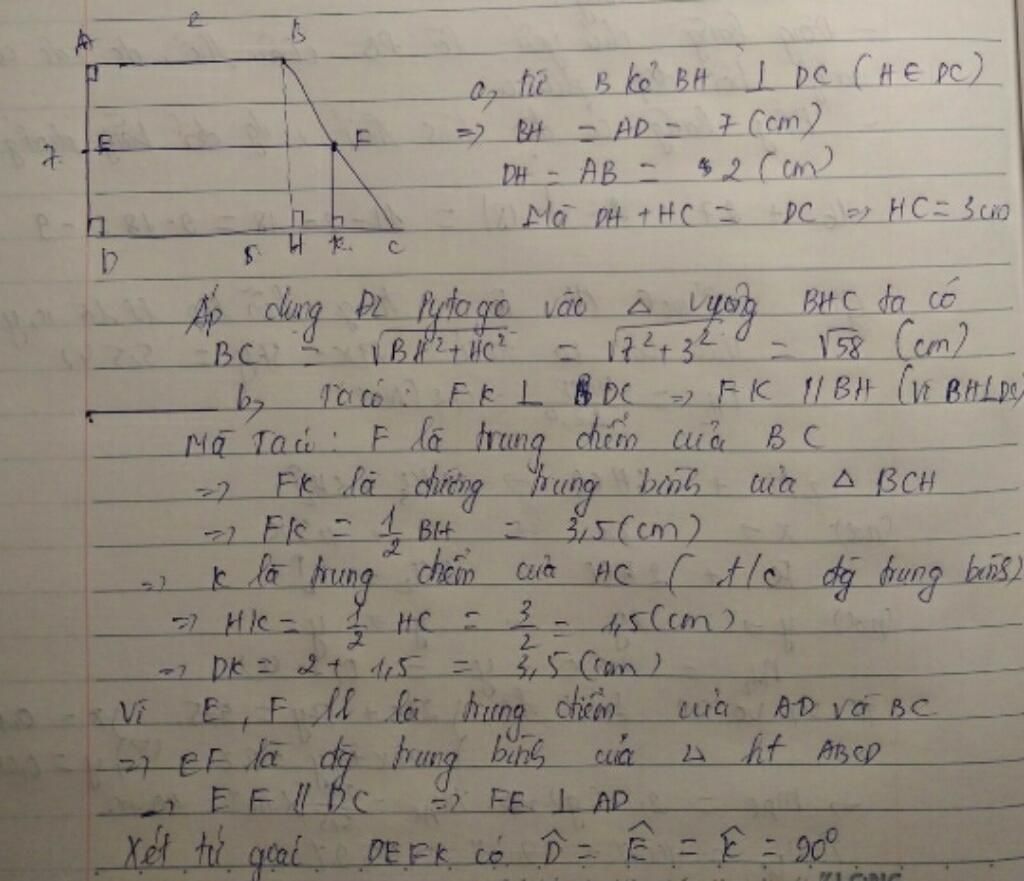 A 2 B
7 E F
D 5 H K C
a, từ B kẻ BH ⊥ DC ( H ∈ DC )
=> BH = AD = 7 (cm)
DH = AB = 2 (cm)
Mà DH + HC = DC => HC = 3cm
Áp dụng ĐL Pytago vào Δ vuông BHC ta có
BC = √BH²+HC² = √7²+3² = √58 (cm)
b, Ta có : FK ⊥ DC => FK // BH (Vì BH⊥DC)
Mà Ta có : F là trung điểm của BC
=> FK là đường trung bình của Δ BCH
=> FK = 1/2 BH = 3,5 (cm)
=> K là trung điểm của HC ( t/c đg trung bình)
=> HK = 1/2 HC = 3/2 = 1,5 (cm)
=> DK = 2 + 1,5 = 3,5 (cm)
Vì E, F ll là trung điểm của AD và BC
=> EF là đg trung bình của Δ ht ABCD
-> EF // DC => FE ⊥ AD
Xét tứ giác DEFK có D̂ = Ê = K̂ = 90⁰